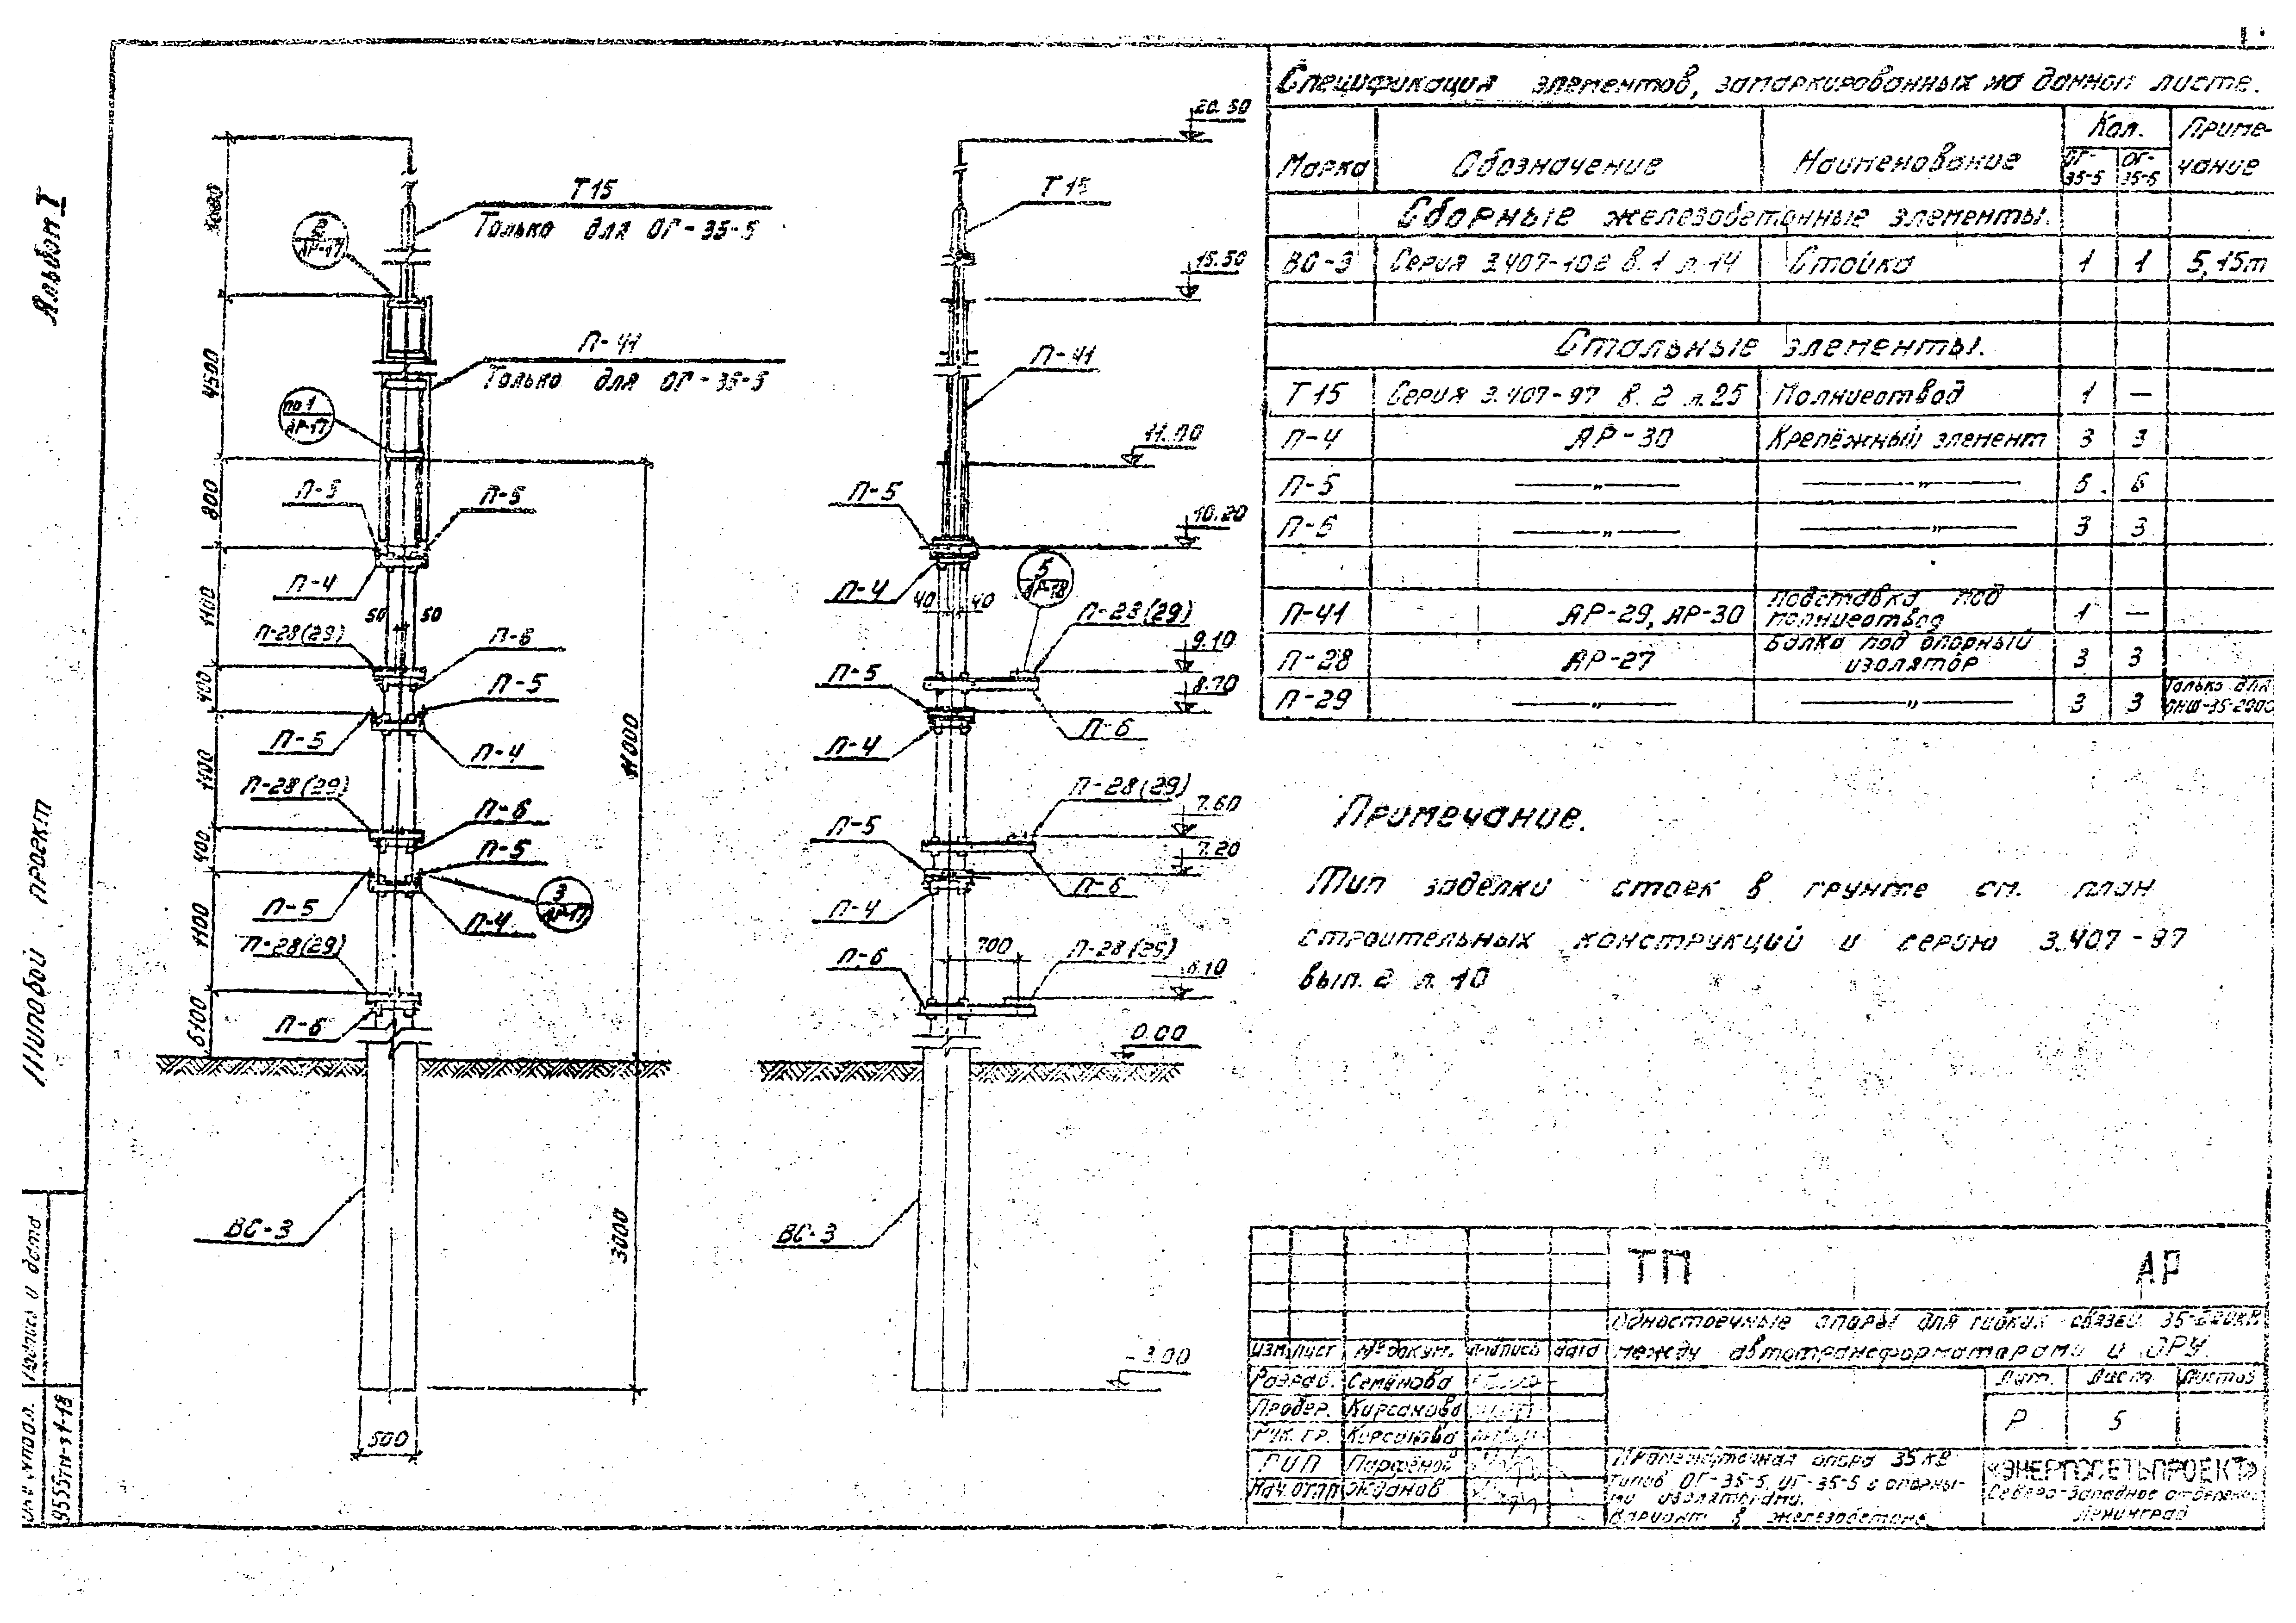 Альбом I
Типовой проект
Подпись и дата
9555тм-31-18
5000
4500
800
1100
400
1100
400
1100
6100
11000
3000
500
2
АР-17
Т15
Только для ОГ-35-5
П-41
Только для ОГ-35-5
по 1
АР-17
П-5
П-5
П-4
50
50
П-28(29)
П-6
П-5
П-5
П-4
П-28(29)
П-6
П-5
П-5
П-4
3
АР-17
П-28(29)
П-6
ВС-3
20.50
Т15
15.50
П-41
11.00
П-5
10.20
П-4
40
40
5
АР-18
П-28(29)
9.10
П-5
8.70
П-4
П-6
П-28(29)
7.60
П-5
7.20
П-4
П-6
П-6
700
П-28(29)
6.10
0.00
ВС-3
-3.00
Спецификация элементов, замаркированных на данном листе.
Марка Обозначение Наименование Кол. Приме-
ОГ-35-5 ОГ-35-6 чание
Сборные железобетонные элементы.
ВС-3 Серия 3.407-102 в.1 л.14 Стойка 1 1 5,15т
Стальные элементы.
Т15 Серия 3.407-97 в. 2 л.25 Молниеотвод 1 —
П-4 АР-30 Крепёжный элемент 3 3
П-5 —„— —„— 6 6
П-6 —„— —„— 3 3
П-41 АР-29, АР-30 Подставка под молниеотвод 1 —
П-28 АР-27 Балка под опорный изолятор 3 3
П-29 —„— —„— 3 3 Только для ОНШ-35-2000
Примечание.
Тип заделки стоек в грунте см. план
строительных конструкций и серию 3.407-97
вып. 2 л. 10
ТП АР
Одностоечные опоры для гибких связей 35-220кВ
между автотрансформаторами и ОРУ
Изм. лист № докум. подпись дата
Разраб. Семёнова
Провер. Кирсанова
Рук. гр. Кирсанова
ГИП Парфёнов
Нач.отд. Жданов
Лит. Лист Листов
Р 5
Промежуточная опора 35 кВ
типов ОГ-35-5, ОГ-35-6 с опорны-
ми изоляторами.
Вариант в железобетоне.
«ЭНЕРГОСЕТЬПРОЕКТ»
Северо-Западное отделение
Ленинград